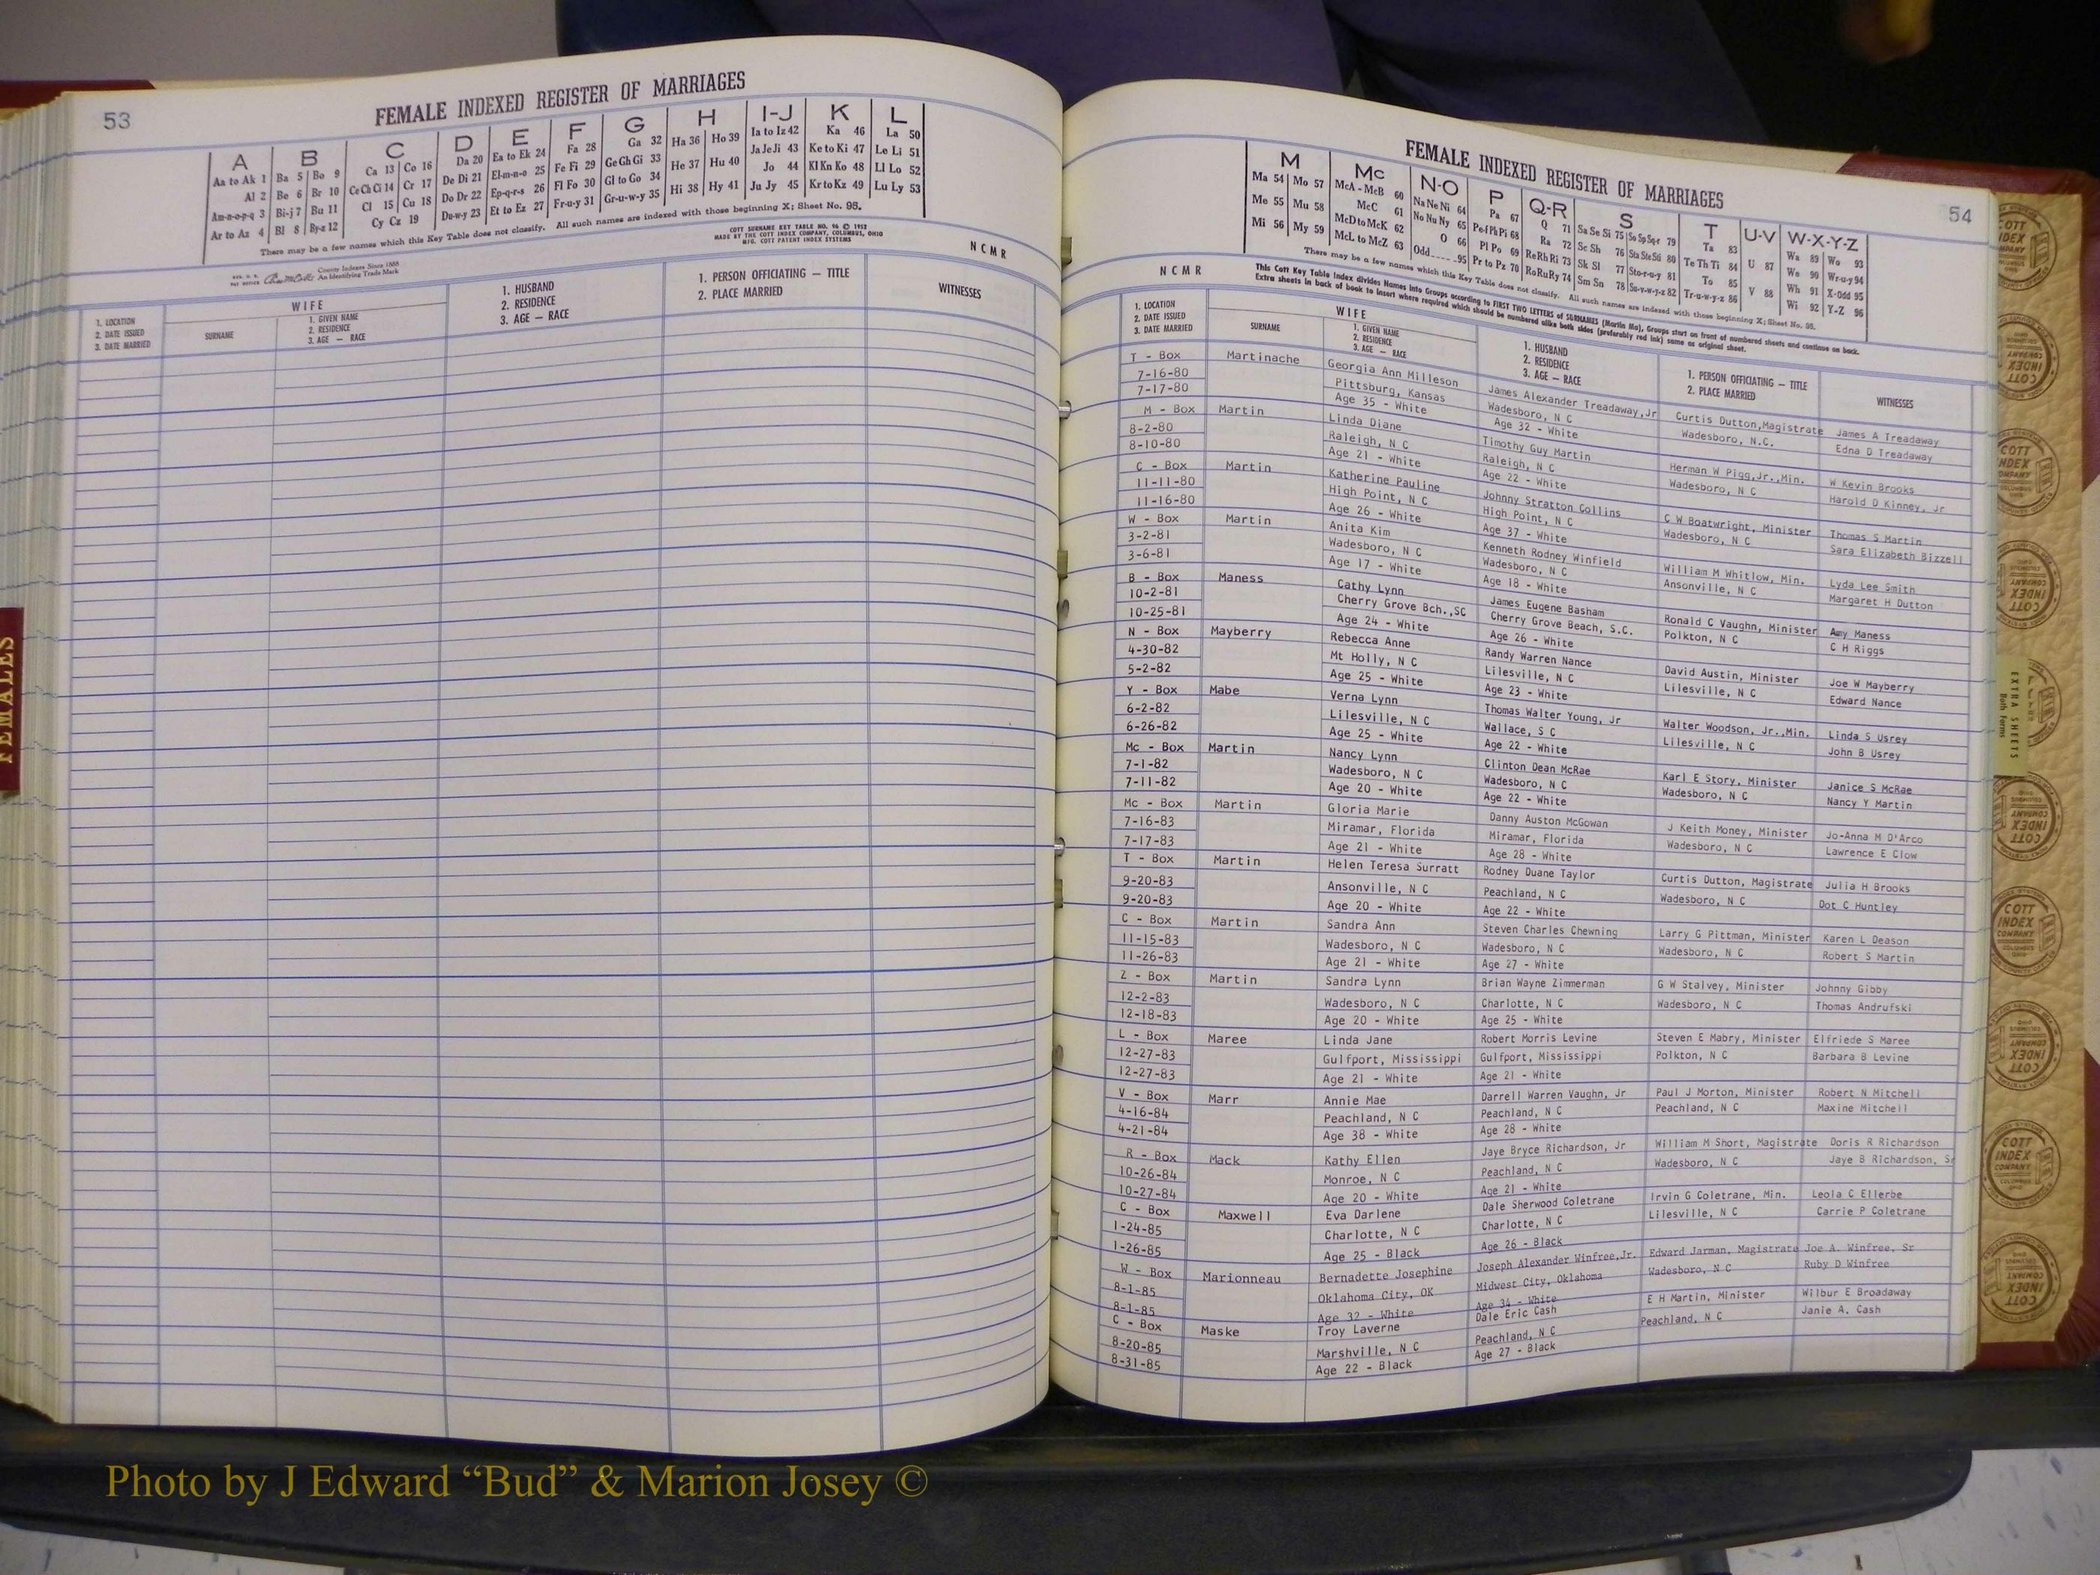 53
FEMALE INDEXED REGISTER OF MARRIAGES
A B C D E F G H I-J K L
Aa to Ak 1 Ba 5 Bo 9 Ca 13 Co 16 Da 20 Ea to Ek 24 Fa 28 Ga 32 Ha 36 Ho 39 Ia to Iz 42 Ka 46 La 50
Al 2 Be 6 Br 10 Ce Ch Ci 14 Cr 17 De Di 21 El-m-n-o 25 Fe Fi 29 Ge Gh Gi 33 He 37 Hu 40 Ja Je Ji 43 Ke to Ki 47 Le Li 51
Am-n-o-p-q 3 Bi-j 7 Bu 11 Cl 15 Cu 18 Do Dr 22 Ep-q-r-s 26 Fl Fo 30 Gl to Go 34 Hi 38 Hy 41 Jo 44 Kl Kn Ko 48 Ll Lo 52
Ar to Az 4 Bl 8 By-z 12 Cy Cz 19 Du-w-y 23 Et to Ez 27 Fr-u-y 31 Gr-u-w-y 35 Ju Jy 45 Kr to Kz 49 Lu Ly 53
There may be a few names which this Key Table does not classify. All such names are indexed with those beginning X; Sheet No. 95.
COTT SURNAME KEY TABLE NO. 96 © 1952
MADE BY THE COTT INDEX COMPANY, COLUMBUS, OHIO
MFG. COTT PATENT INDEX SYSTEMS
N C M R
County Indexes Since 1888
An Identifying Trade Mark
1. LOCATION
2. DATE ISSUED
3. DATE MARRIED
WIFE
SURNAME
1. GIVEN NAME
2. RESIDENCE
3. AGE — RACE
1. HUSBAND
2. RESIDENCE
3. AGE — RACE
1. PERSON OFFICIATING — TITLE
2. PLACE MARRIED
WITNESSES
FEMALES
FEMALE INDEXED REGISTER OF MARRIAGES
54
M Mc N-O P Q-R S T U-V W-X-Y-Z
Ma 54 Mo 57 McA - McB 60 Na Ne Ni 64 Pa 67 Q 71 Sa Se Si 75 So Sp Sq-r 79 Ta 83 U 87 Wa 89 Wo 93
Me 55 Mu 58 McC 61 No Nu Ny 65 Pe-f Ph Pi 68 Ra 72 Sc Sh 76 Sta Ste Sti 80 Te Th Ti 84 V 88 We 90 Wr-u-y 94
Mi 56 My 59 McD to McK 62 O 66 Pl Po 69 Re Rh Ri 73 Sk Sl 77 Sto-r-u-y 81 To 85 Wh 91 X-Odd 95
McL to McZ 63 Odd ----- 95 Pr to Pz 70 Ro Ru Ry 74 Sm Sn 78 Su-v-w-y-z 82 Tr-u-w-y-z 86 Wi 92 Y-Z 96
There may be a few names which this Key Table does not classify. All such names are indexed with those beginning X; Sheet No. 95.
N C M R
This Cott Key Table Index divides Names into Groups according to FIRST TWO LETTERS of SURNAMES (Martin Ma), Groups start on front of numbered sheets and continue on back.
Extra sheets in back of book to insert where required which should be numbered alike both sides (preferably red ink) same as original sheet.
1. LOCATION
2. DATE ISSUED
3. DATE MARRIED
WIFE
SURNAME
1. GIVEN NAME
2. RESIDENCE
3. AGE — RACE
1. HUSBAND
2. RESIDENCE
3. AGE — RACE
1. PERSON OFFICIATING — TITLE
2. PLACE MARRIED
WITNESSES
T - Box Martinache Georgia Ann Milleson James Alexander Treadaway,Jr Curtis Dutton,Magistrate James A Treadaway
7-16-80 Pittsburg, Kansas Wadesboro, N C Wadesboro, N.C. Edna D Treadaway
7-17-80 Age 35 - White Age 32 - White
M - Box Martin Linda Diane Timothy Guy Martin Herman W Pigg,Jr.,Min. W Kevin Brooks
8-2-80 Raleigh, N C Raleigh, N C Wadesboro, N C Harold D Kinney, Jr
8-10-80 Age 21 - White Age 22 - White
C - Box Martin Katherine Pauline Johnny Stratton Collins C W Boatwright, Minister Thomas S Martin
11-11-80 High Point, N C High Point, N C Wadesboro, N C Sara Elizabeth Bizzell
11-16-80 Age 26 - White Age 37 - White
W - Box Martin Anita Kim Kenneth Rodney Winfield William M Whitlow, Min. Lyda Lee Smith
3-2-81 Wadesboro, N C Wadesboro, N C Ansonville, N C Margaret H Dutton
3-6-81 Age 17 - White Age 18 - White
B - Box Maness Cathy Lynn James Eugene Basham Ronald C Vaughn, Minister Amy Maness
10-2-81 Cherry Grove Bch.,SC Cherry Grove Beach, S.C. Polkton, N C C H Riggs
10-25-81 Age 24 - White Age 26 - White
N - Box Mayberry Rebecca Anne Randy Warren Nance David Austin, Minister Joe W Mayberry
4-30-82 Mt Holly, N C Lilesville, N C Lilesville, N C Edward Nance
5-2-82 Age 25 - White Age 23 - White
Y - Box Mabe Verna Lynn Thomas Walter Young, Jr Walter Woodson, Jr.,Min. Linda S Usrey
6-2-82 Lilesville, N C Wallace, S C Lilesville, N C John B Usrey
6-26-82 Age 25 - White Age 22 - White
Mc - Box Martin Nancy Lynn Clinton Dean McRae Karl E Story, Minister Janice S McRae
7-1-82 Wadesboro, N C Wadesboro, N C Wadesboro, N C Nancy Y Martin
7-11-82 Age 20 - White Age 22 - White
Mc - Box Martin Gloria Marie Danny Auston McGowan J Keith Money, Minister Jo-Anna M D'Arco
7-16-83 Miramar, Florida Miramar, Florida Wadesboro, N C Lawrence E Clow
7-17-83 Age 21 - White Age 28 - White
T - Box Martin Helen Teresa Surratt Rodney Duane Taylor Curtis Dutton, Magistrate Julia H Brooks
9-20-83 Ansonville, N C Peachland, N C Wadesboro, N C Dot C Huntley
9-20-83 Age 20 - White Age 22 - White
C - Box Martin Sandra Ann Steven Charles Chewning Larry G Pittman, Minister Karen L Deason
11-15-83 Wadesboro, N C Wadesboro, N C Wadesboro, N C Robert S Martin
11-26-83 Age 21 - White Age 27 - White
Z - Box Martin Sandra Lynn Brian Wayne Zimmerman G W Stalvey, Minister Johnny Gibby
12-2-83 Wadesboro, N C Charlotte, N C Wadesboro, N C Thomas Andrufski
12-18-83 Age 20 - White Age 25 - White
L - Box Maree Linda Jane Robert Morris Levine Steven E Mabry, Minister Elfriede S Maree
12-27-83 Gulfport, Mississippi Gulfport, Mississippi Polkton, N C Barbara B Levine
12-27-83 Age 21 - White Age 21 - White
V - Box Marr Annie Mae Darrell Warren Vaughn, Jr Paul J Morton, Minister Robert N Mitchell
4-16-84 Peachland, N C Peachland, N C Peachland, N C Maxine Mitchell
4-21-84 Age 38 - White Age 28 - White
R - Box Mack Kathy Ellen Jaye Bryce Richardson, Jr William M Short, Magistrate Doris R Richardson
10-26-84 Monroe, N C Peachland, N C Wadesboro, N C Jaye B Richardson, Sr
10-27-84 Age 20 - White Age 21 - White
C - Box Maxwell Eva Darlene Dale Sherwood Coletrane Irvin G Coletrane, Min. Leola C Ellerbe
1-24-85 Charlotte, N C Charlotte, N C Lilesville, N C Carrie P Coletrane
1-26-85 Age 25 - Black Age 26 - Black
W - Box Marionneau Bernadette Josephine Joseph Alexander Winfree,Jr. Edward Jarman, Magistrate Joe A. Winfree, Sr
8-1-85 Oklahoma City, OK Midwest City, Oklahoma Wadesboro, N C Ruby D Winfree
8-1-85 Age 32 - White Age 34 - White
C - Box Maske Troy Laverne Dale Eric Cash E H Martin, Minister Wilbur E Broadaway
8-20-85 Marshville, N C Peachland, N C Peachland, N C Janie A. Cash
8-31-85 Age 22 - Black Age 27 - Black
EXTRA SHEETS
Both Forms
COTT
INDEX
COMPANY
COLUMBUS
OHIO
Photo by J Edward “Bud” & Marion Josey ©